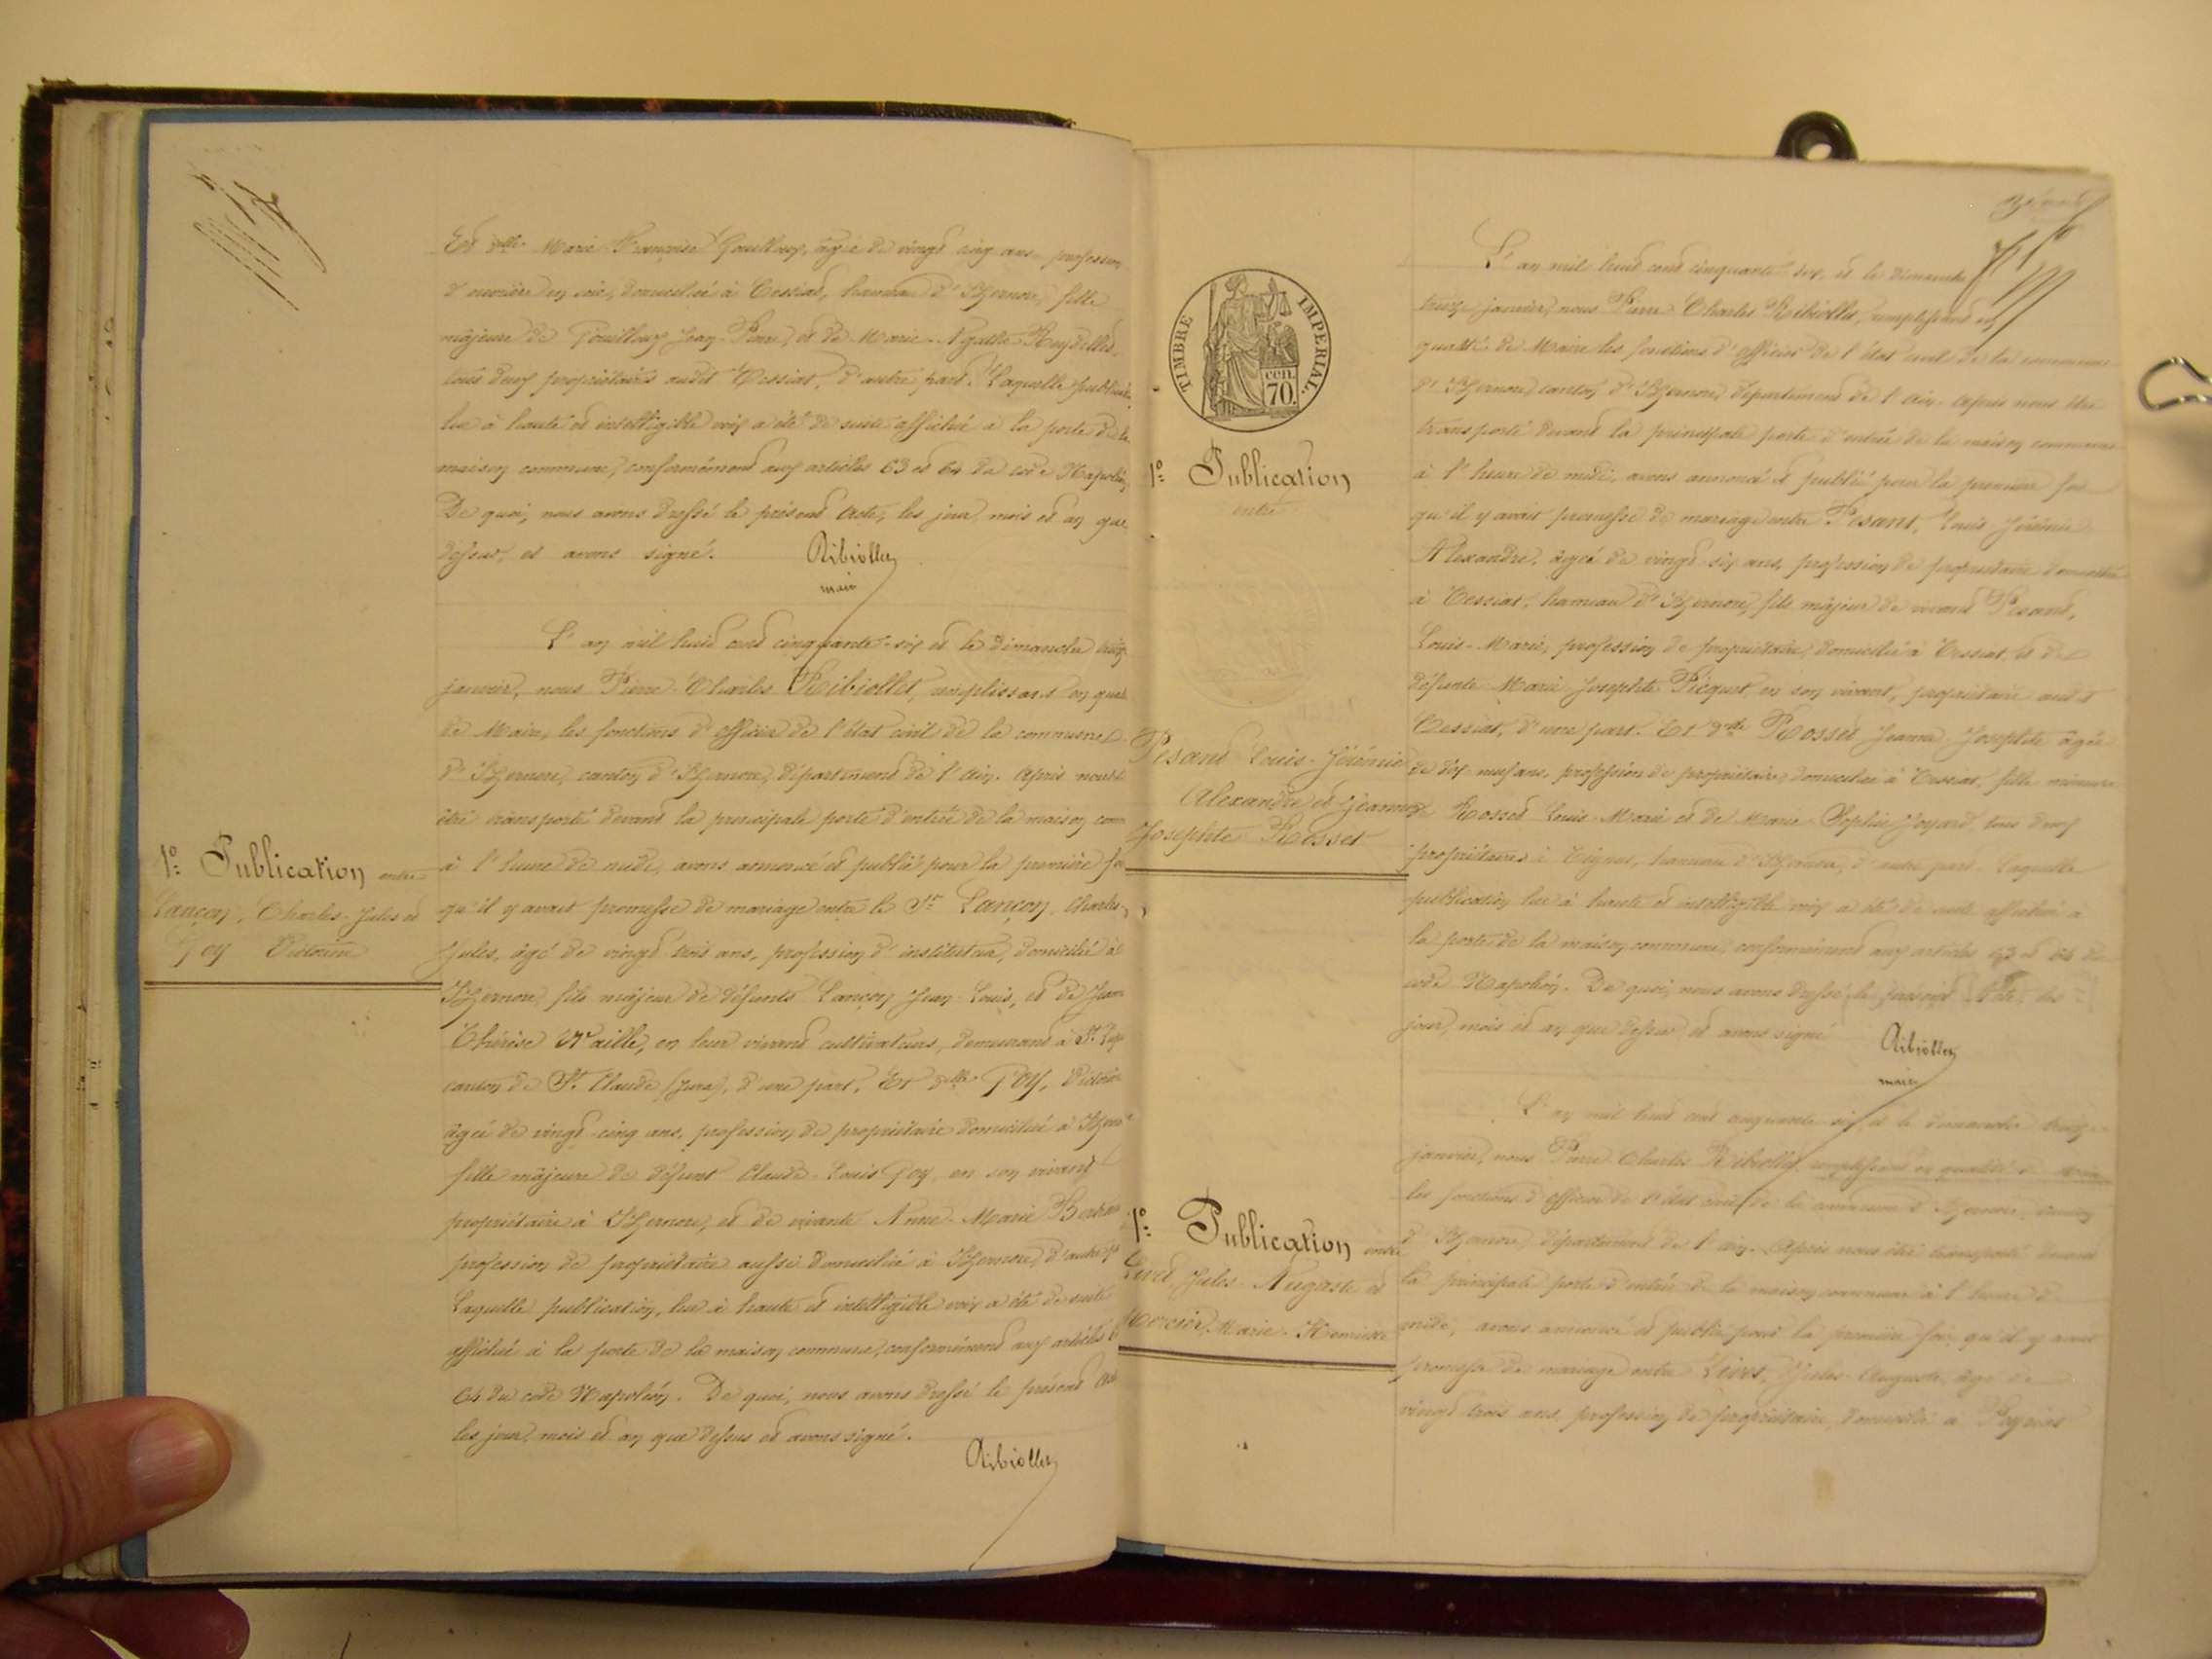 Et dlle Marie Françoise Gouilloux, âgée de vingt cinq ans, profession
d'ouvrière en soie, domiciliée à Cessiat, hameau d'Izernore, fille
majeure de Gouilloux Jean-Pierre, et de Marie-Agathe Reydellet,
tous deux propriétaires audit Cessiat, d'autre part. Laquelle publication
lue à haute et intelligible voix a été de suite affichée à la porte de la
maison commune, conformément aux articles 63 et 64 du code Napoléon.
De quoi, nous avons dressé le présent acte, les jour, mois et an que
dessus, et avons signé. Ribiollet
maire
L'an mil huit cent cinquante-six et le dimanche treize
janvier, nous Pierre-Charles Ribiollet, remplissant en qualité
de Maire, les fonctions d'officier de l'état civil de la commune
d'Izernore, canton d'Izernore, département de l'ain. Après nous
être transporté devant la principale porte d'entrée de la maison com
1º Publication entre
Lançon, Charles-Jules et
Goy Victoire
à l'heure de midi, avons annoncé et publié pour la première fois
qu'il y avait promesse de mariage entre le Sr Lançon, Charles-
Jules, âgé de vingt trois ans, profession d'instituteur, domicilié à
Izernore, fils majeur de défunts Lançon Jean-Louis, et de Jeanne
Thérèse Vaille, en leur vivant cultivateurs, demeurant à St
canton de St Claude (Jura), d'une part, Et dlle Goy, Victoire
âgée de vingt-cinq ans, profession de propriétaire domiciliée à Izernore
fille majeure de défunt Claude-Louis Goy, en son vivant
propriétaire à Izernore, et de vivante Anne-Marie
profession de propriétaire aussi domiciliée à Izernore, d'autre part
Laquelle publication, lue à haute et intelligible voix a été de suite
affichée à la porte de la maison commune, conformément aux articles 63
64 du code Napoléon. De quoi, nous avons dressé le présent acte
les jour, mois et an que dessus et avons signé.
Ribiollet
TIMBRE IMPERIAL.
cen.
70.
1º Publication
entre
Pesant Louis-Jérémie
Alexandre et Jeanne
Josephte Rosset
L'an mil huit cent cinquante six, et le dimanche
treize janvier, nous Pierre Charles Ribiollet, remplissant en
qualité de Maire les fonctions d'officier de l'état civil de la commune
d'Izernore, canton d'Izernore, département de l'ain. Après nous être
transporté devant la principale porte d'entrée de la maison commune
à l'heure de midi, avons annoncé et publié pour la première fois
qu'il y avait promesse de mariage entre Pesant, Louis-Jérémie
Alexandre, âgé de vingt-six ans, profession de propriétaire domicilié
à Cessiat, hameau d'Izernore, fils majeur de vivant Pesant,
Louis-Marie, profession de propriétaire, domicilié à Cessiat, et de
défunte Marie Josephte Picquet, en son vivant, propriétaire audit
Cessiat, d'une part. Et dlle Rosset Jeanne-Josephte âgée
de dix neuf ans, profession de propriétaire, domiciliée à Cessiat, fille mineure
de Rosset Louis-Marie et de Marie-Sophie Joyard, tous deux
propriétaires à hameau d'Izernore, d'autre part. Laquelle
publication lue à haute et intelligible voix a été de suite affichée à
la porte de la maison commune, conformément aux articles 63 et 64 du
code Napoléon. De quoi, nous avons dressé le présent acte, les
jour, mois et an que dessus et avons signé
Ribiollet
maire
1º Publication entre
Livet, Jules-Auguste et
Mercier, Marie-
L'an mil huit cent cinquante six, et le dimanche treize
janvier, nous Pierre Charles Ribiollet, remplissant en qualité de Maire
les fonctions d'officier de l'état civil de la commune d'Izernore, canton
d'Izernore, département de l'ain. Après nous être transporté devant
la principale porte d'entrée de la maison commune à l'heure de
midi, avons annoncé et publié pour la première fois, qu'il y avait
promesse de mariage entre Livet, Jules-Auguste, âgé de
vingt trois ans, profession de propriétaire, domicilié à